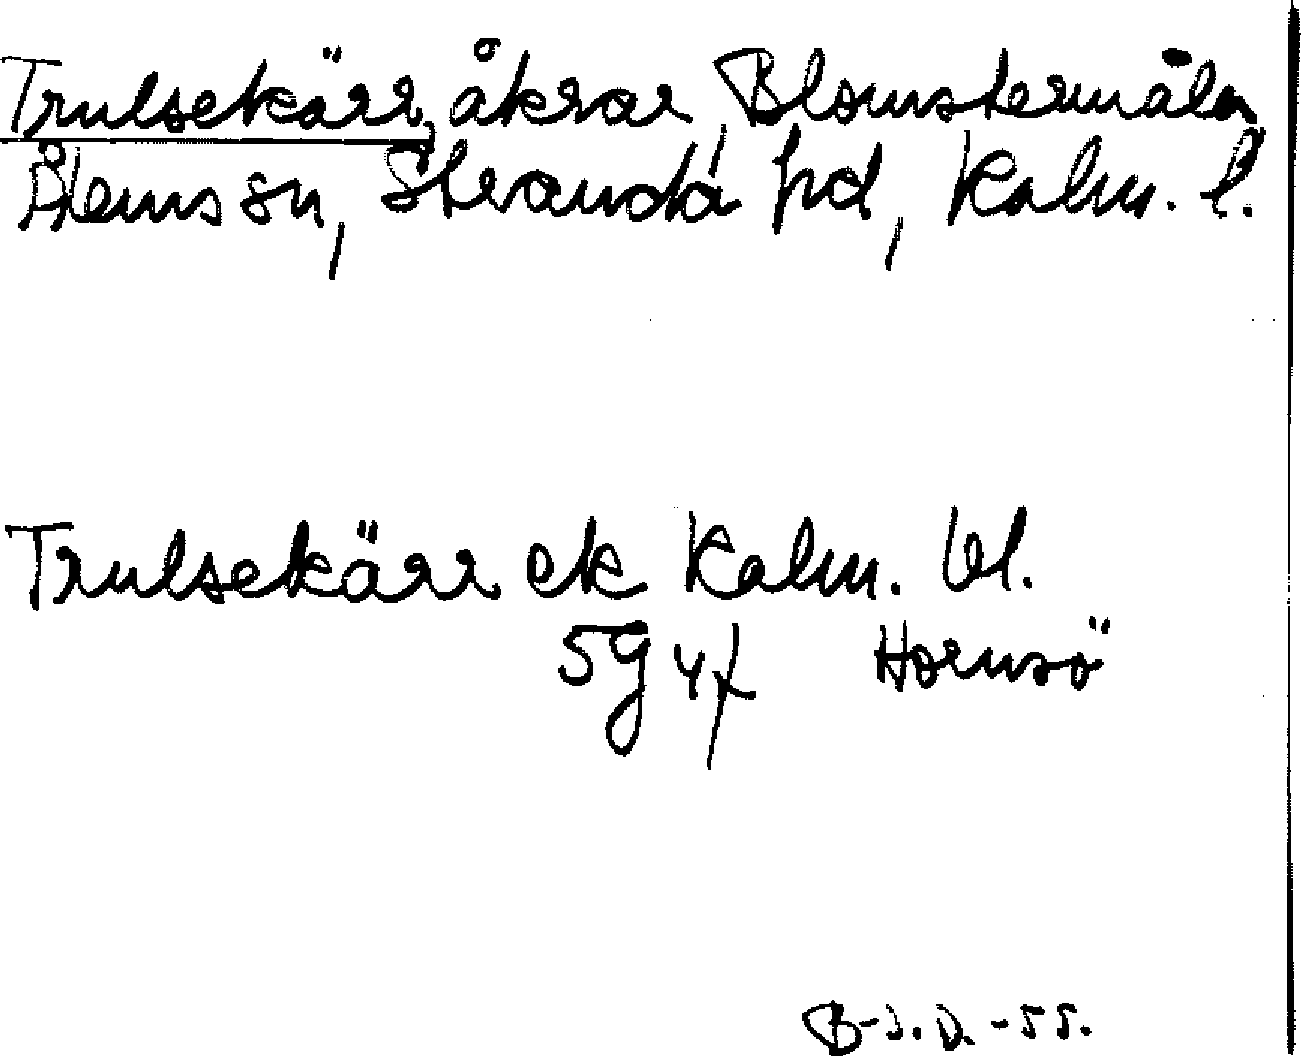 Trulsekärr, åkrar, Blomstermåla
Ålems sn, Stranda hd, Kalm. l.
Trulsekärr ek Kalm. bl.
5g 4f Hornsö
B-J. D. -55.